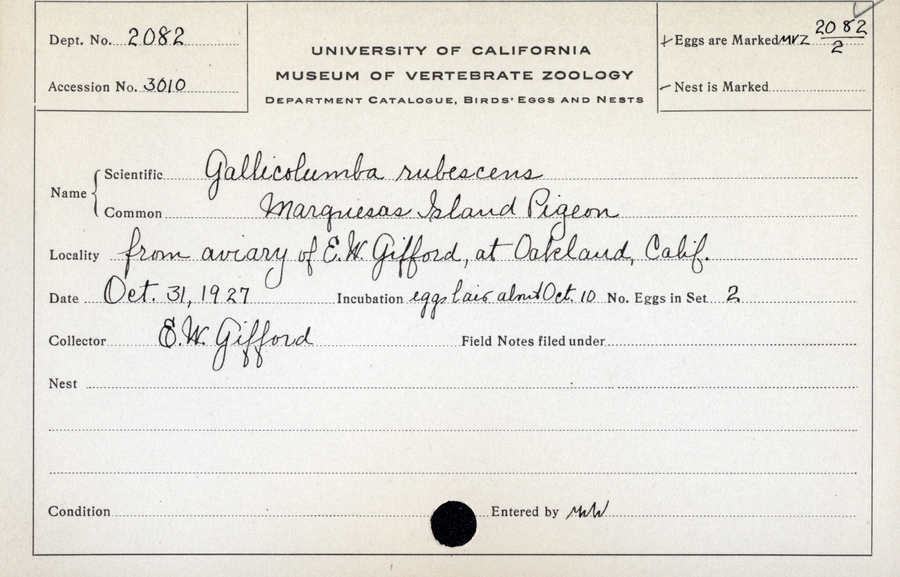 Dept. No. 2082
Accession No. 3010
UNIVERSITY OF CALIFORNIA
MUSEUM OF VERTEBRATE ZOOLOGY
DEPARTMENT CATALOGUE, BIRDS' EGGS AND NESTS
+ Eggs are Marked MVZ 2082/2
– Nest is Marked
Name
Scientific Gallicolumba rubescens
Common Marquesas Island Pigeon
Locality from aviary of E.W. Gifford, at Oakland, Calif.
Date Oct. 31, 1927 Incubation eggs laid about Oct. 10 No. Eggs in Set 2
Collector E.W. Gifford Field Notes filed under
Nest
Condition Entered by